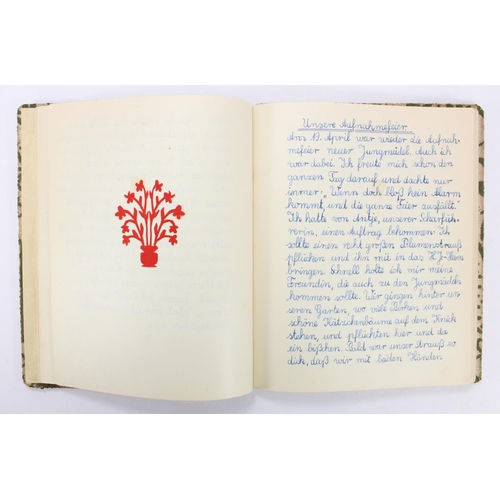 Unsere Aufnahmefeier.
Am 19. April war wieder die Aufnah-
mefeier neuer Jungmädel. Auch ich
war dabei. Ich freute mich schon den
ganzen Tag darauf und dachte nur
immer: "Wenn doch bloß kein Alarm
kommt, und die ganze Feier ausfällt."
Ich hatte von Antje, unserer Scharfüh-
rerin, einen Auftrag bekommen: Ich
sollte einen recht großen Blumenstrauß
pflücken und ihn mit in das HJ-Heim
bringen. Schnell holte ich mir meine
Freundin, die auch zu den Jungmädeln
kommen sollte. Wir gingen hinter un-
seren Garten, wo viele Birken und
schöne Kätzchenbäume auf dem Knick
stehen, und pflückten hier und da
ein bißchen. Bald war unser Strauß so
dick, daß wir mit beiden Händen